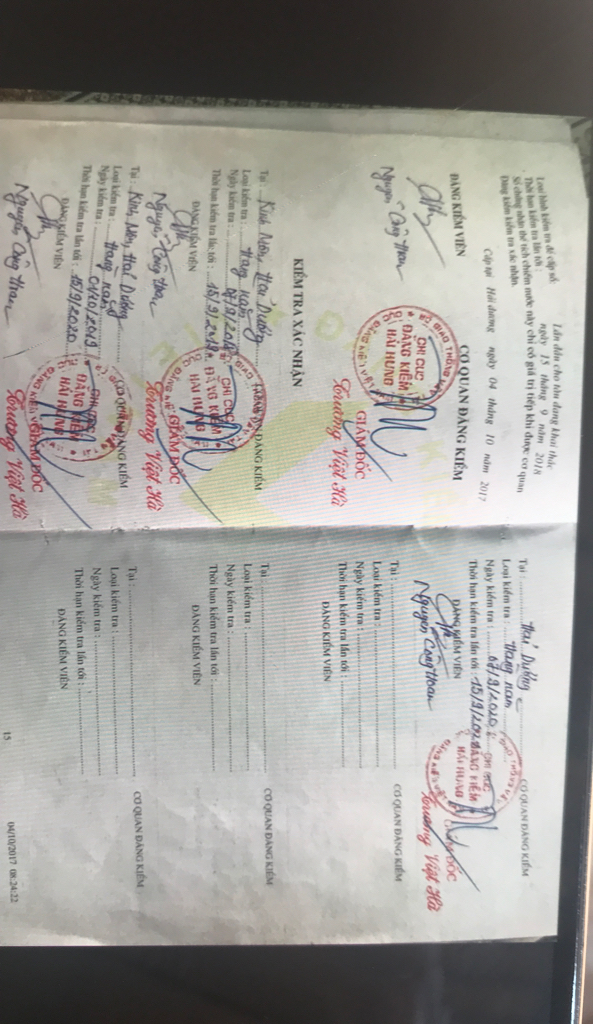 Loại hình kiểm tra để cấp sổ: Lần đầu cho tàu đang khai thác
Thời hạn kiểm tra lần tới : ngày 15 tháng 9 năm 2018
Sổ chứng nhận thể tích chiếm nước này chỉ có giá trị tiếp khi được cơ quan
Đăng kiểm kiểm tra xác nhận.
Cấp tại Hải dương ngày 04 tháng 10 năm 2017
ĐĂNG KIỂM VIÊN
CƠ QUAN ĐĂNG KIỂM
CHI CỤC
ĐĂNG KIỂM
HẢI HƯNG
GIÁM ĐỐC
Nguyễn Công Hoan
Trương Việt Hà
KIỂM TRA XÁC NHẬN
Tại : Kinh Môn, Hải Dương
Loại kiểm tra : Hàng năm
Ngày kiểm tra :
Thời hạn kiểm tra lần tới : 15/9/2019
ĐĂNG KIỂM VIÊN
CƠ QUAN ĐĂNG KIỂM
CHI CỤC
ĐĂNG KIỂM
HẢI HƯNG
GIÁM ĐỐC
Nguyễn Công Hoan
Trương Việt Hà
Tại : Kinh Môn, Hải Dương
Loại kiểm tra : Hàng năm
Ngày kiểm tra : 01/10/2019
Thời hạn kiểm tra lần tới : 15/9/2020
ĐĂNG KIỂM VIÊN
CƠ QUAN ĐĂNG KIỂM
CHI CỤC
ĐĂNG KIỂM
HẢI HƯNG
GIÁM ĐỐC
Nguyễn Công Hoan
Trương Việt Hà
Tại : Hải Dương
Loại kiểm tra : Hàng năm
Ngày kiểm tra : 07/9/2020
Thời hạn kiểm tra lần tới : 15/9/2021
ĐĂNG KIỂM VIÊN
CƠ QUAN ĐĂNG KIỂM
CHI CỤC
ĐĂNG KIỂM
HẢI HƯNG
GIÁM ĐỐC
Nguyễn Công Hoan
Trương Việt Hà
Tại :
Loại kiểm tra :
Ngày kiểm tra :
Thời hạn kiểm tra lần tới :
ĐĂNG KIỂM VIÊN
CƠ QUAN ĐĂNG KIỂM
Tại :
Loại kiểm tra :
Ngày kiểm tra :
Thời hạn kiểm tra lần tới :
ĐĂNG KIỂM VIÊN
CƠ QUAN ĐĂNG KIỂM
Tại :
Loại kiểm tra :
Ngày kiểm tra :
Thời hạn kiểm tra lần tới :
ĐĂNG KIỂM VIÊN
CƠ QUAN ĐĂNG KIỂM
15
04/10/2017 08:24:22